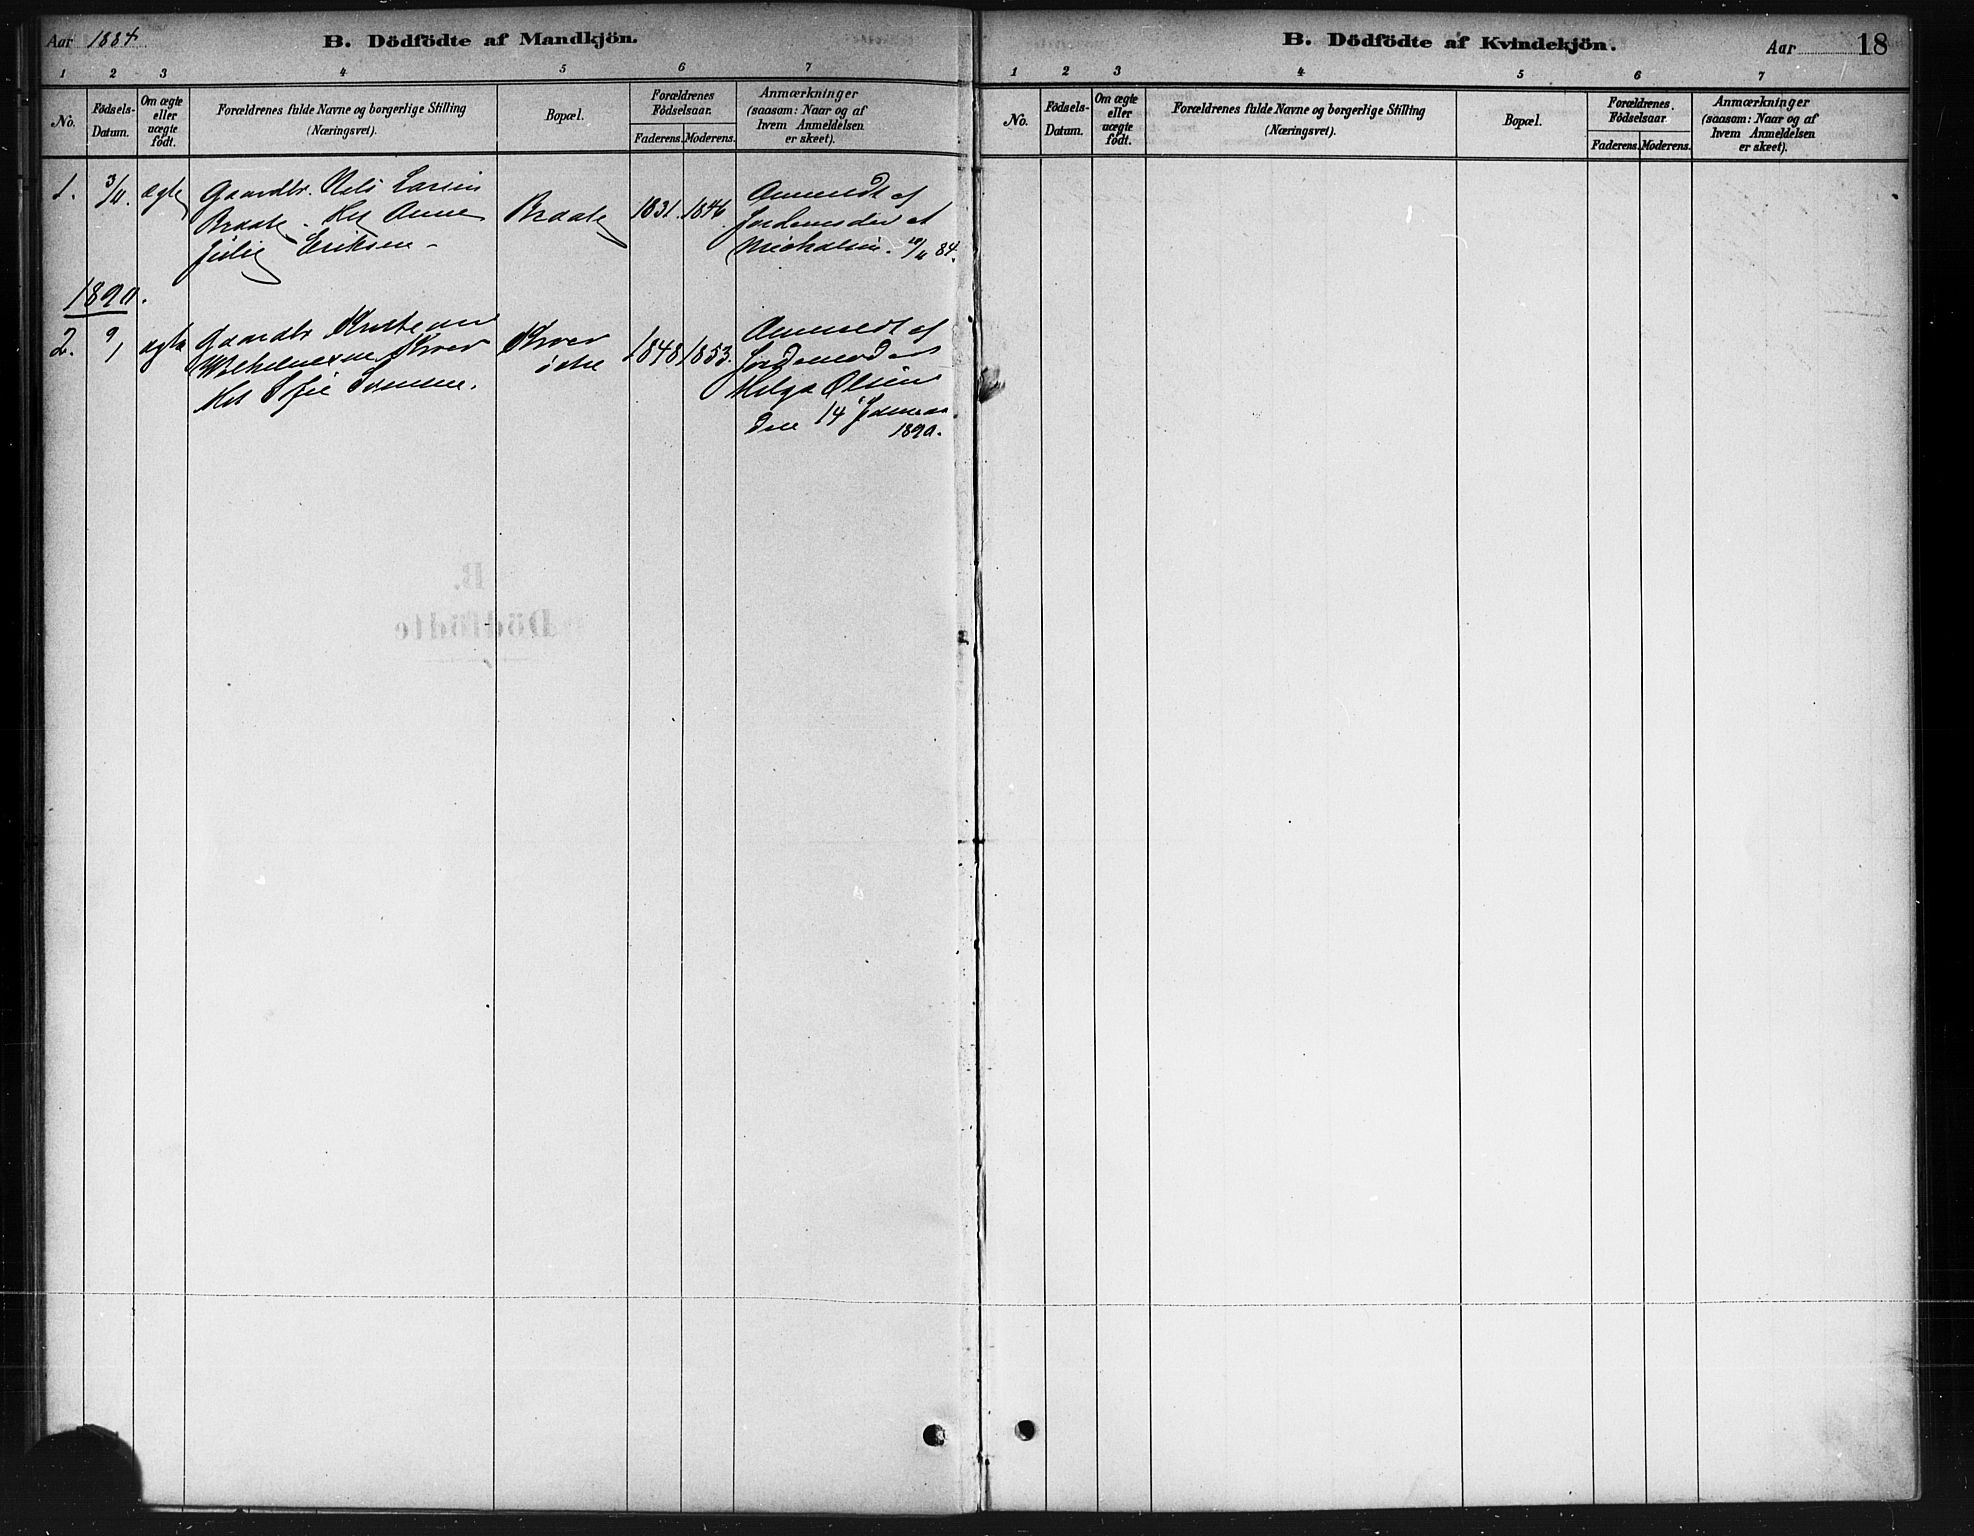 Aar 1884
B. Dödfödte af Mandkjön.
1 2 3 4 5 6 7
No.
Födsels-
Datum.
Om ægte
eller
uægte
födt.
Forældrenes fulde Navne og borgerlige Stilling
(Næringsvei).
Bopæl.
Forældrenes
Födselsaar.
Faderens. Moderens.
Anmærkninger
(saasom: Naar og af
hvem Anmeldelsen
er skeet).
1. 3/11. ægte
Gaardbr. Nils Larsen
Braate. Hst Anne
Julie Eriksen
Braate
1831. 1846.
Anmeldt af
Jordemoder
Michalsen. 84.
1890.
2. 9/1 ægte
Gaardbr
Hst Sofie
1848 1853.
Anmeldt af
Jordemoder
Helga Olsen
den 14 Januar
1890.
B.
Dödfödte
B. Dödfödte af Kvindekjön.
Aar 18
1 2 3 4 5 6 7
No.
Födsels-
Datum.
Om ægte
eller
uægte
födt.
Forældrenes fulde Navne og borgerlige Stilling
(Næringsvei).
Bopæl.
Forældrenes.
Födselsaar
Faderens. Moderens.
Anmærkninger
(saasom: Naar og af
hvem Anmeldelsen
er skeet).